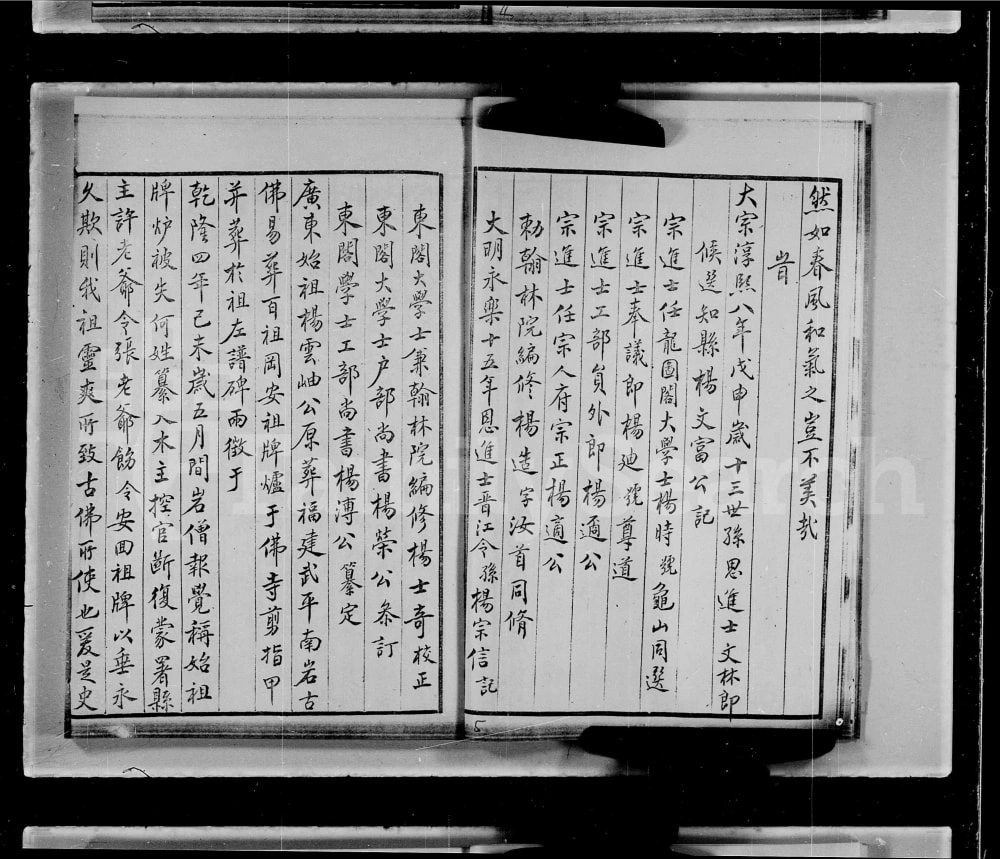 然如春風和氣之豈不美哉
旹
大宗淳熙八年戊申歲十三世孫恩進士文林郎
候選知縣楊文富公記
宗進士任龍圖閣大學士楊時號龜山同選
宗進士奉議郎楊廸號尊道
宗進士工部員外郎楊邇公
宗進士任宗人府宗正楊適公
勅翰林院編修楊造字汝首同脩
大明永樂十五年恩進士晋江令孫楊宗信記
東閣大學士兼翰林院編修楊士奇校正
東閣大學士户部尚書楊榮公叅訂
東閣學士工部尚書楊溥公纂定
廣東始祖楊雲岫公原葬福建武平南岩古
佛易葬百祖岡安祖牌爐于佛寺剪指甲
并葬於祖左譜碑兩徵于
乾隆四年己未歲五月間岩僧報覺稱始祖
牌炉被失何姓纂入木主控官斷復蒙署縣
主許老爺令張老爺飭令安囬祖牌以垂永
久欺則我祖靈爽所致古佛所使也爰是史
5